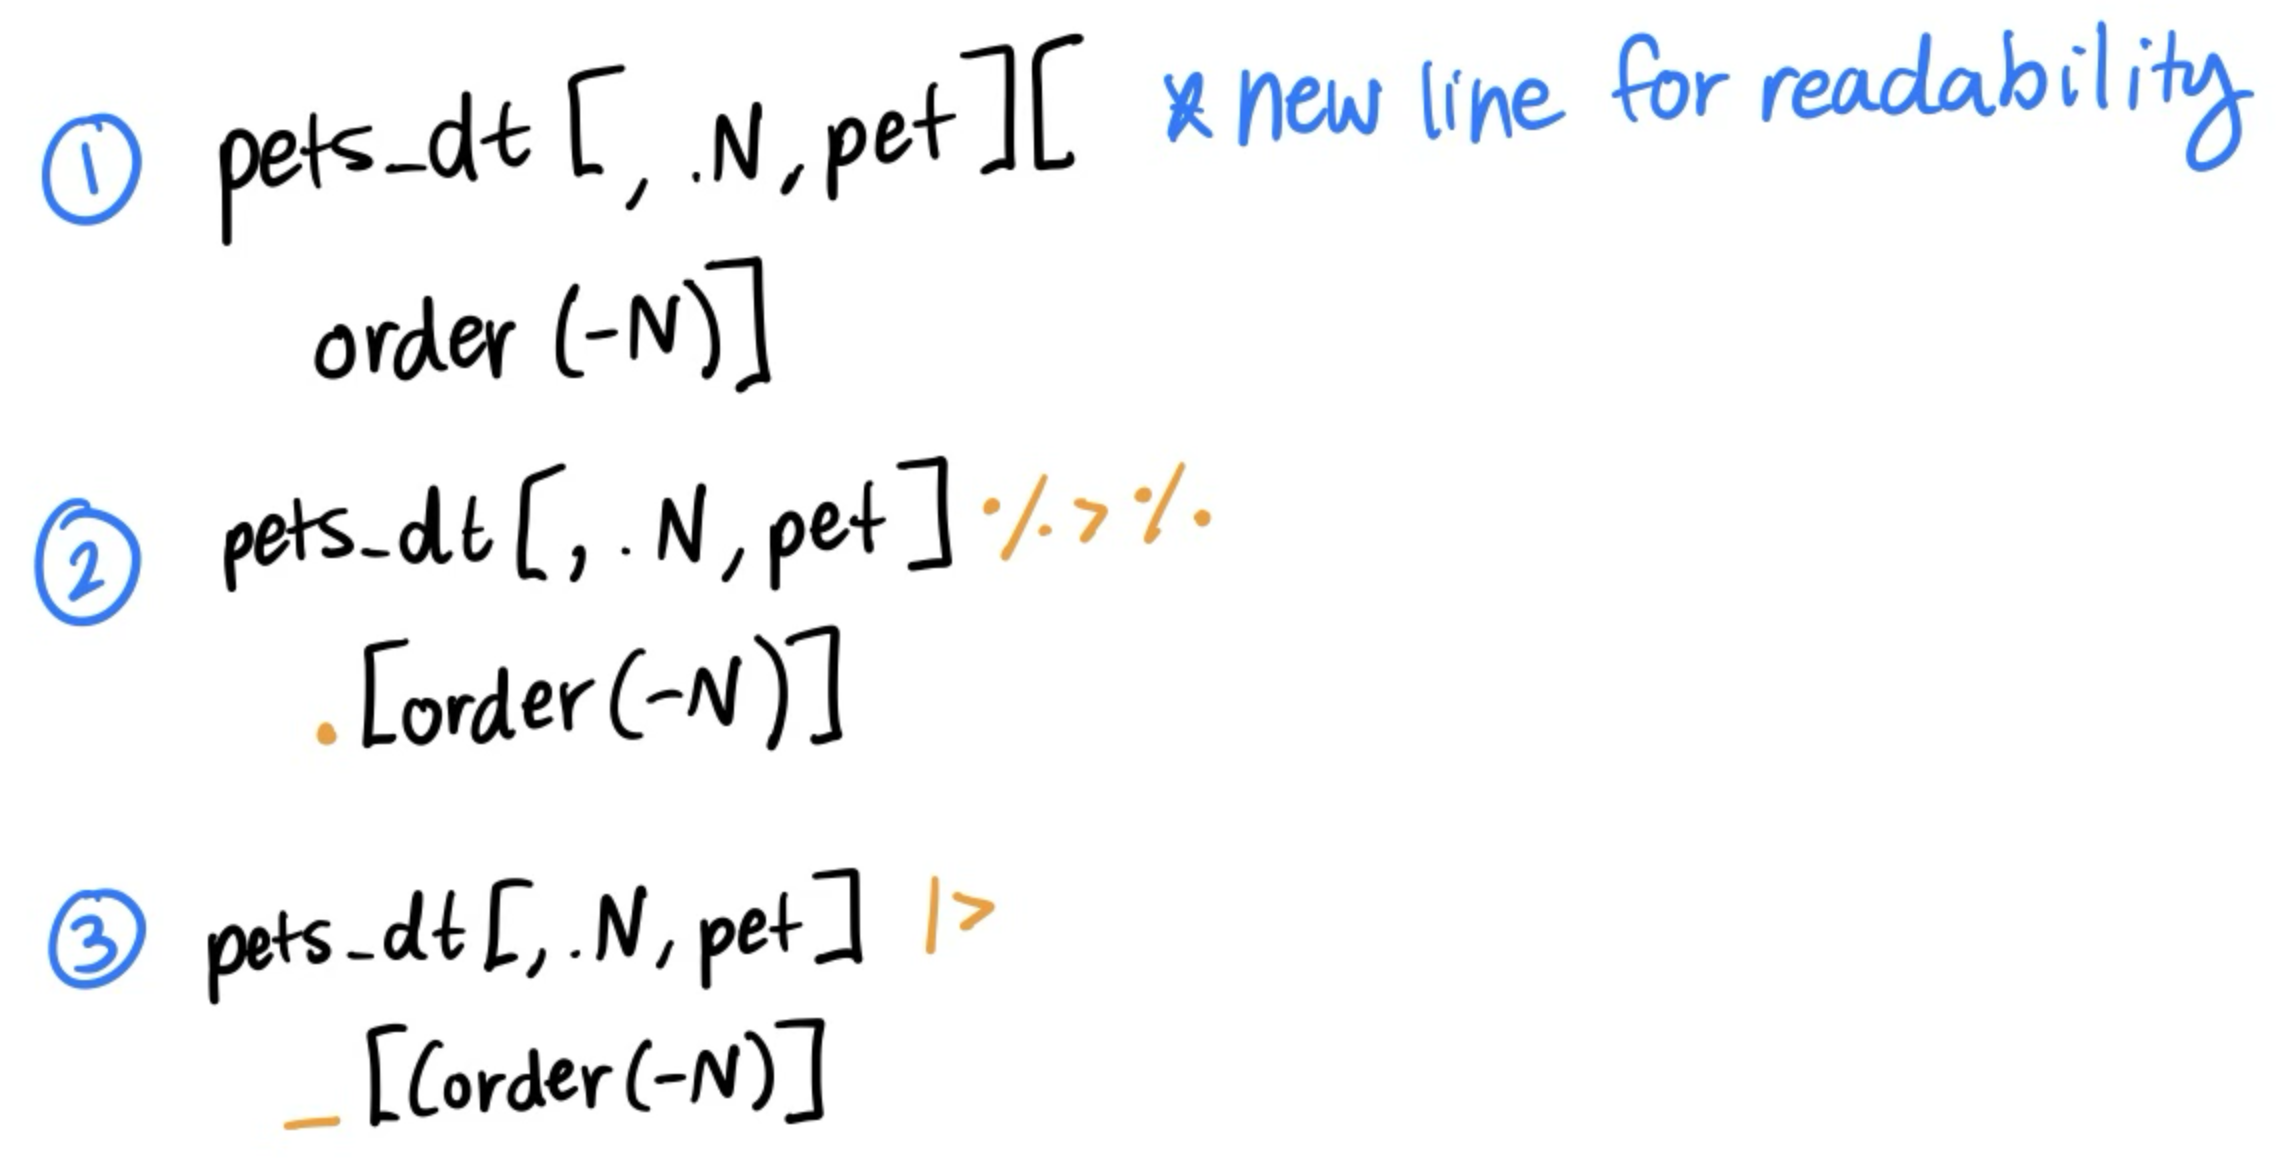 ① pets_dt[, .N, pet][ * new line for readability
order(-N)]
② pets_dt[, .N, pet] %>%
.[order(-N)]
③ pets_dt[, .N, pet] |>
_[(order(-N)]